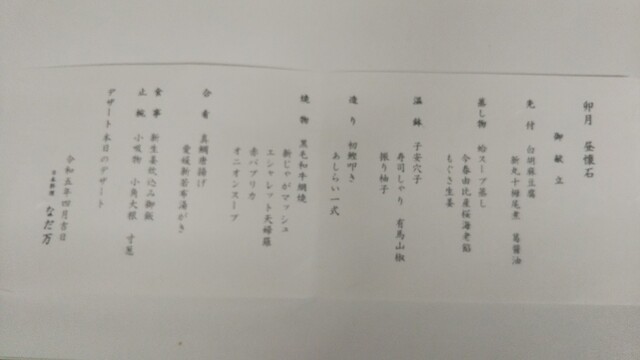 卯月 昼懐石
御献立
先付 白胡麻豆腐
新丸十檸檬煮 葛醤油
蒸し物 蛤スープ蒸し
今春由比産桜海老餡
もぐさ生姜
温鉢 子安穴子
寿司しゃり 有馬山椒
振り柚子
造り 初鰹叩き
あしらい一式
焼物 黒毛和牛網焼
新じゃがマッシュ
エシャレット天婦羅
赤パプリカ
オニオンスープ
合肴 真鯛唐揚げ
愛媛新若布湯がき
食事 新生姜炊込み御飯
止椀 小吸物 小角大根 寸葱
デザート 本日のデザート
令和五年四月吉日
日本料理 なだ万